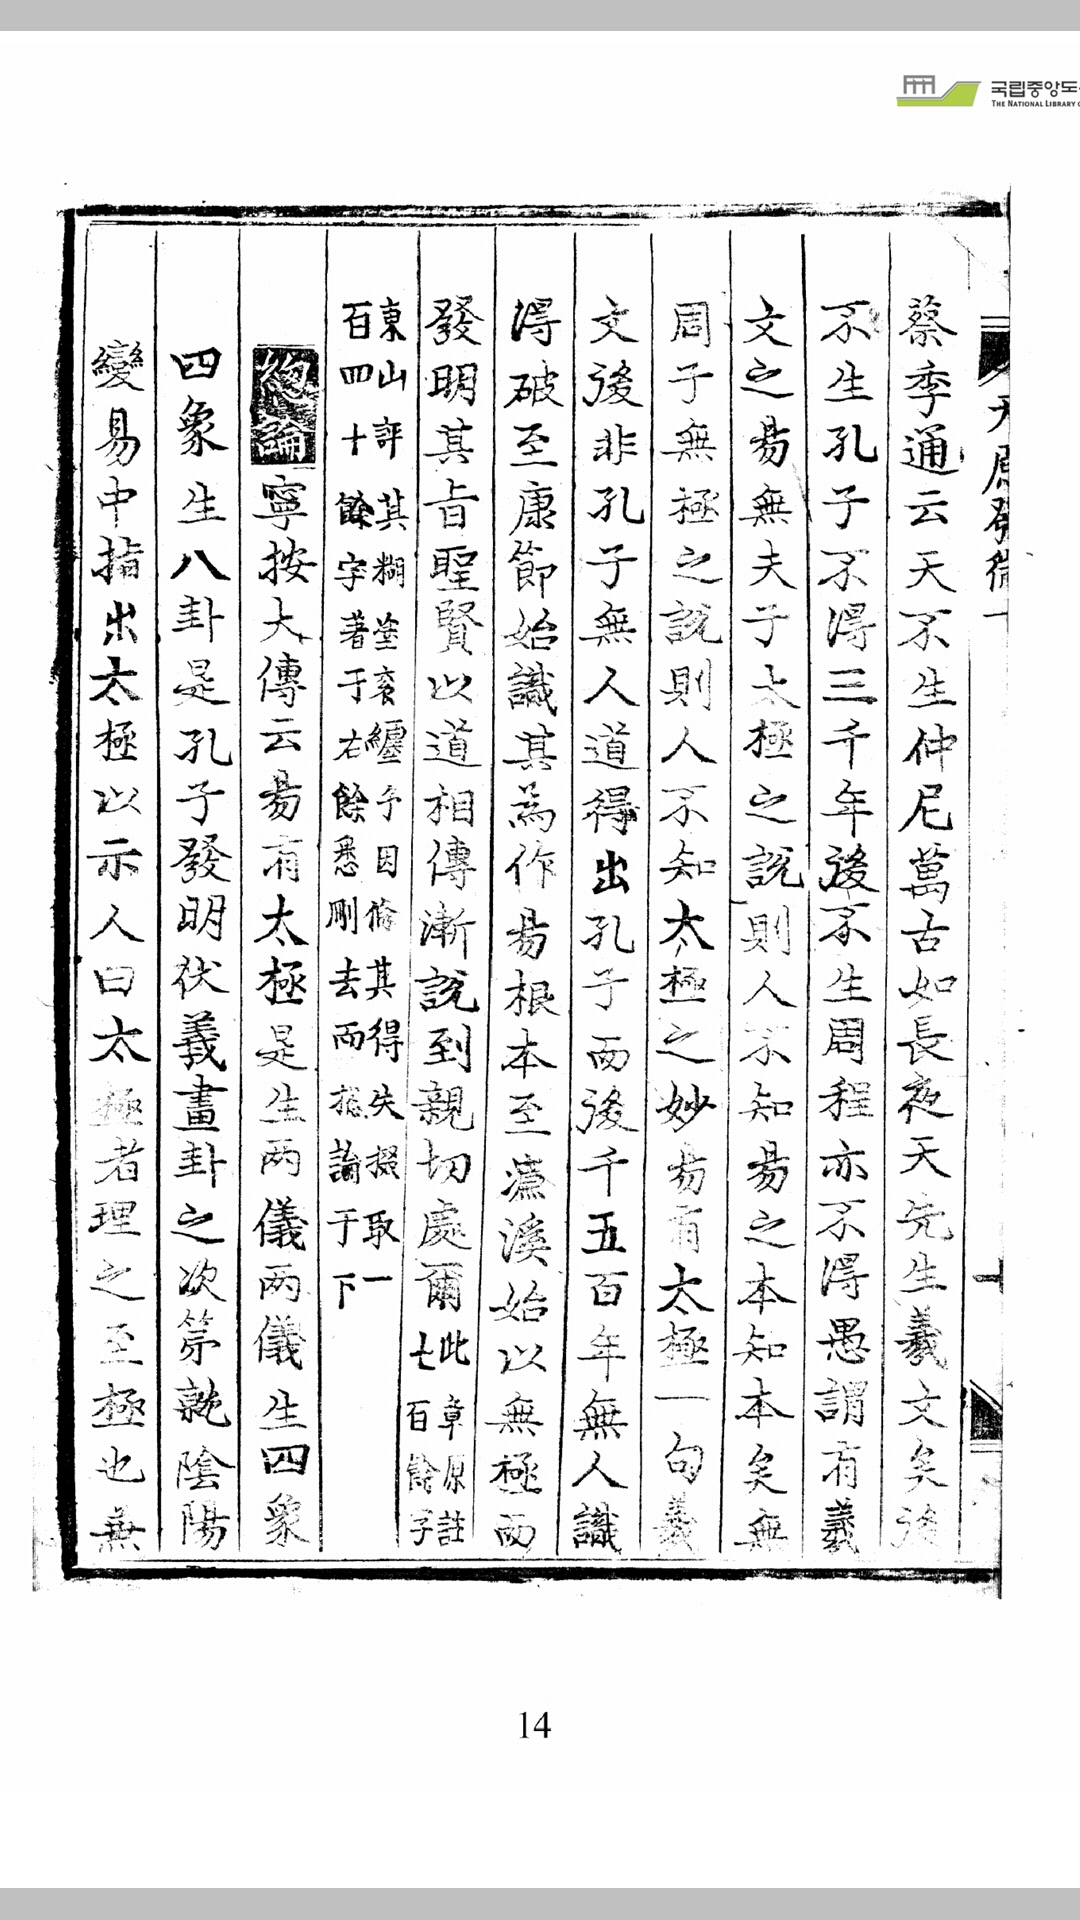 국립중앙도
THE NATIONAL LIBRARY O
天原發微
十
蔡季通云天不生仲尼萬古如長夜天先生羲文矣後
不生孔子不得三千年後不生周程亦不得愚謂有羲
文之易無夫子太極之說則人不知易之本知本矣無
周子無極之說則人不知太極之妙易有太極一句羲
文後非孔子無人道得出孔子而後千五百年無人識
得破至康節始識其為作易根本至濂溪始以無極而
發明其旨聖賢以道相傳漸說到親切處爾此章原註
七百餘字
東山評其糊塗衮纏予因偹其得失掇取一
百四十餘字著于右餘悉刪去而揔論于下
總論寧按大傳云易有太極是生两儀两儀生四象
四象生八卦是孔子發明伏羲畫卦之次第就陰陽
變易中指出太極以示人曰太極者理之至極也無
14